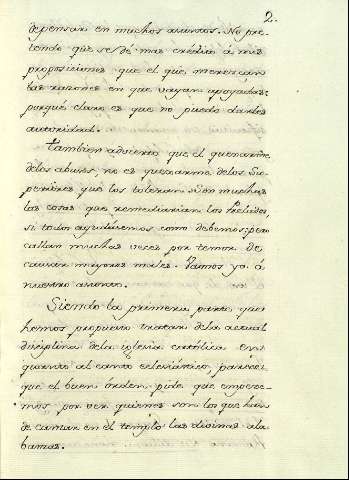 2.
de pensar en muchos asuntos. No pre-
tendo que se dé mas credito á mis
proposiciones que el que merezcan
las razones en que vayan apoyadas;
porqué claro es que no puedo darles
autoridad.
Tambien advierto que el quexarme
delos abusos, no es quexarme delos Su-
periores que los toleran. Son muchas
las cosas que remediarian los Prelados,
si todos ayudáremos como debemos; pero
callan muchas veces por temor de
causar mayores males. Vamos ya á
nuestro asunto.
Siendo la primera parte que
hemos propuesto tratar dela actual
disciplina dela iglesia católica en
quanto al canto eclesiástico, parece
que el buen órden pide que empece-
mos por ver quienes son los que han
de cantar en el templo las divinas ala-
banzas.